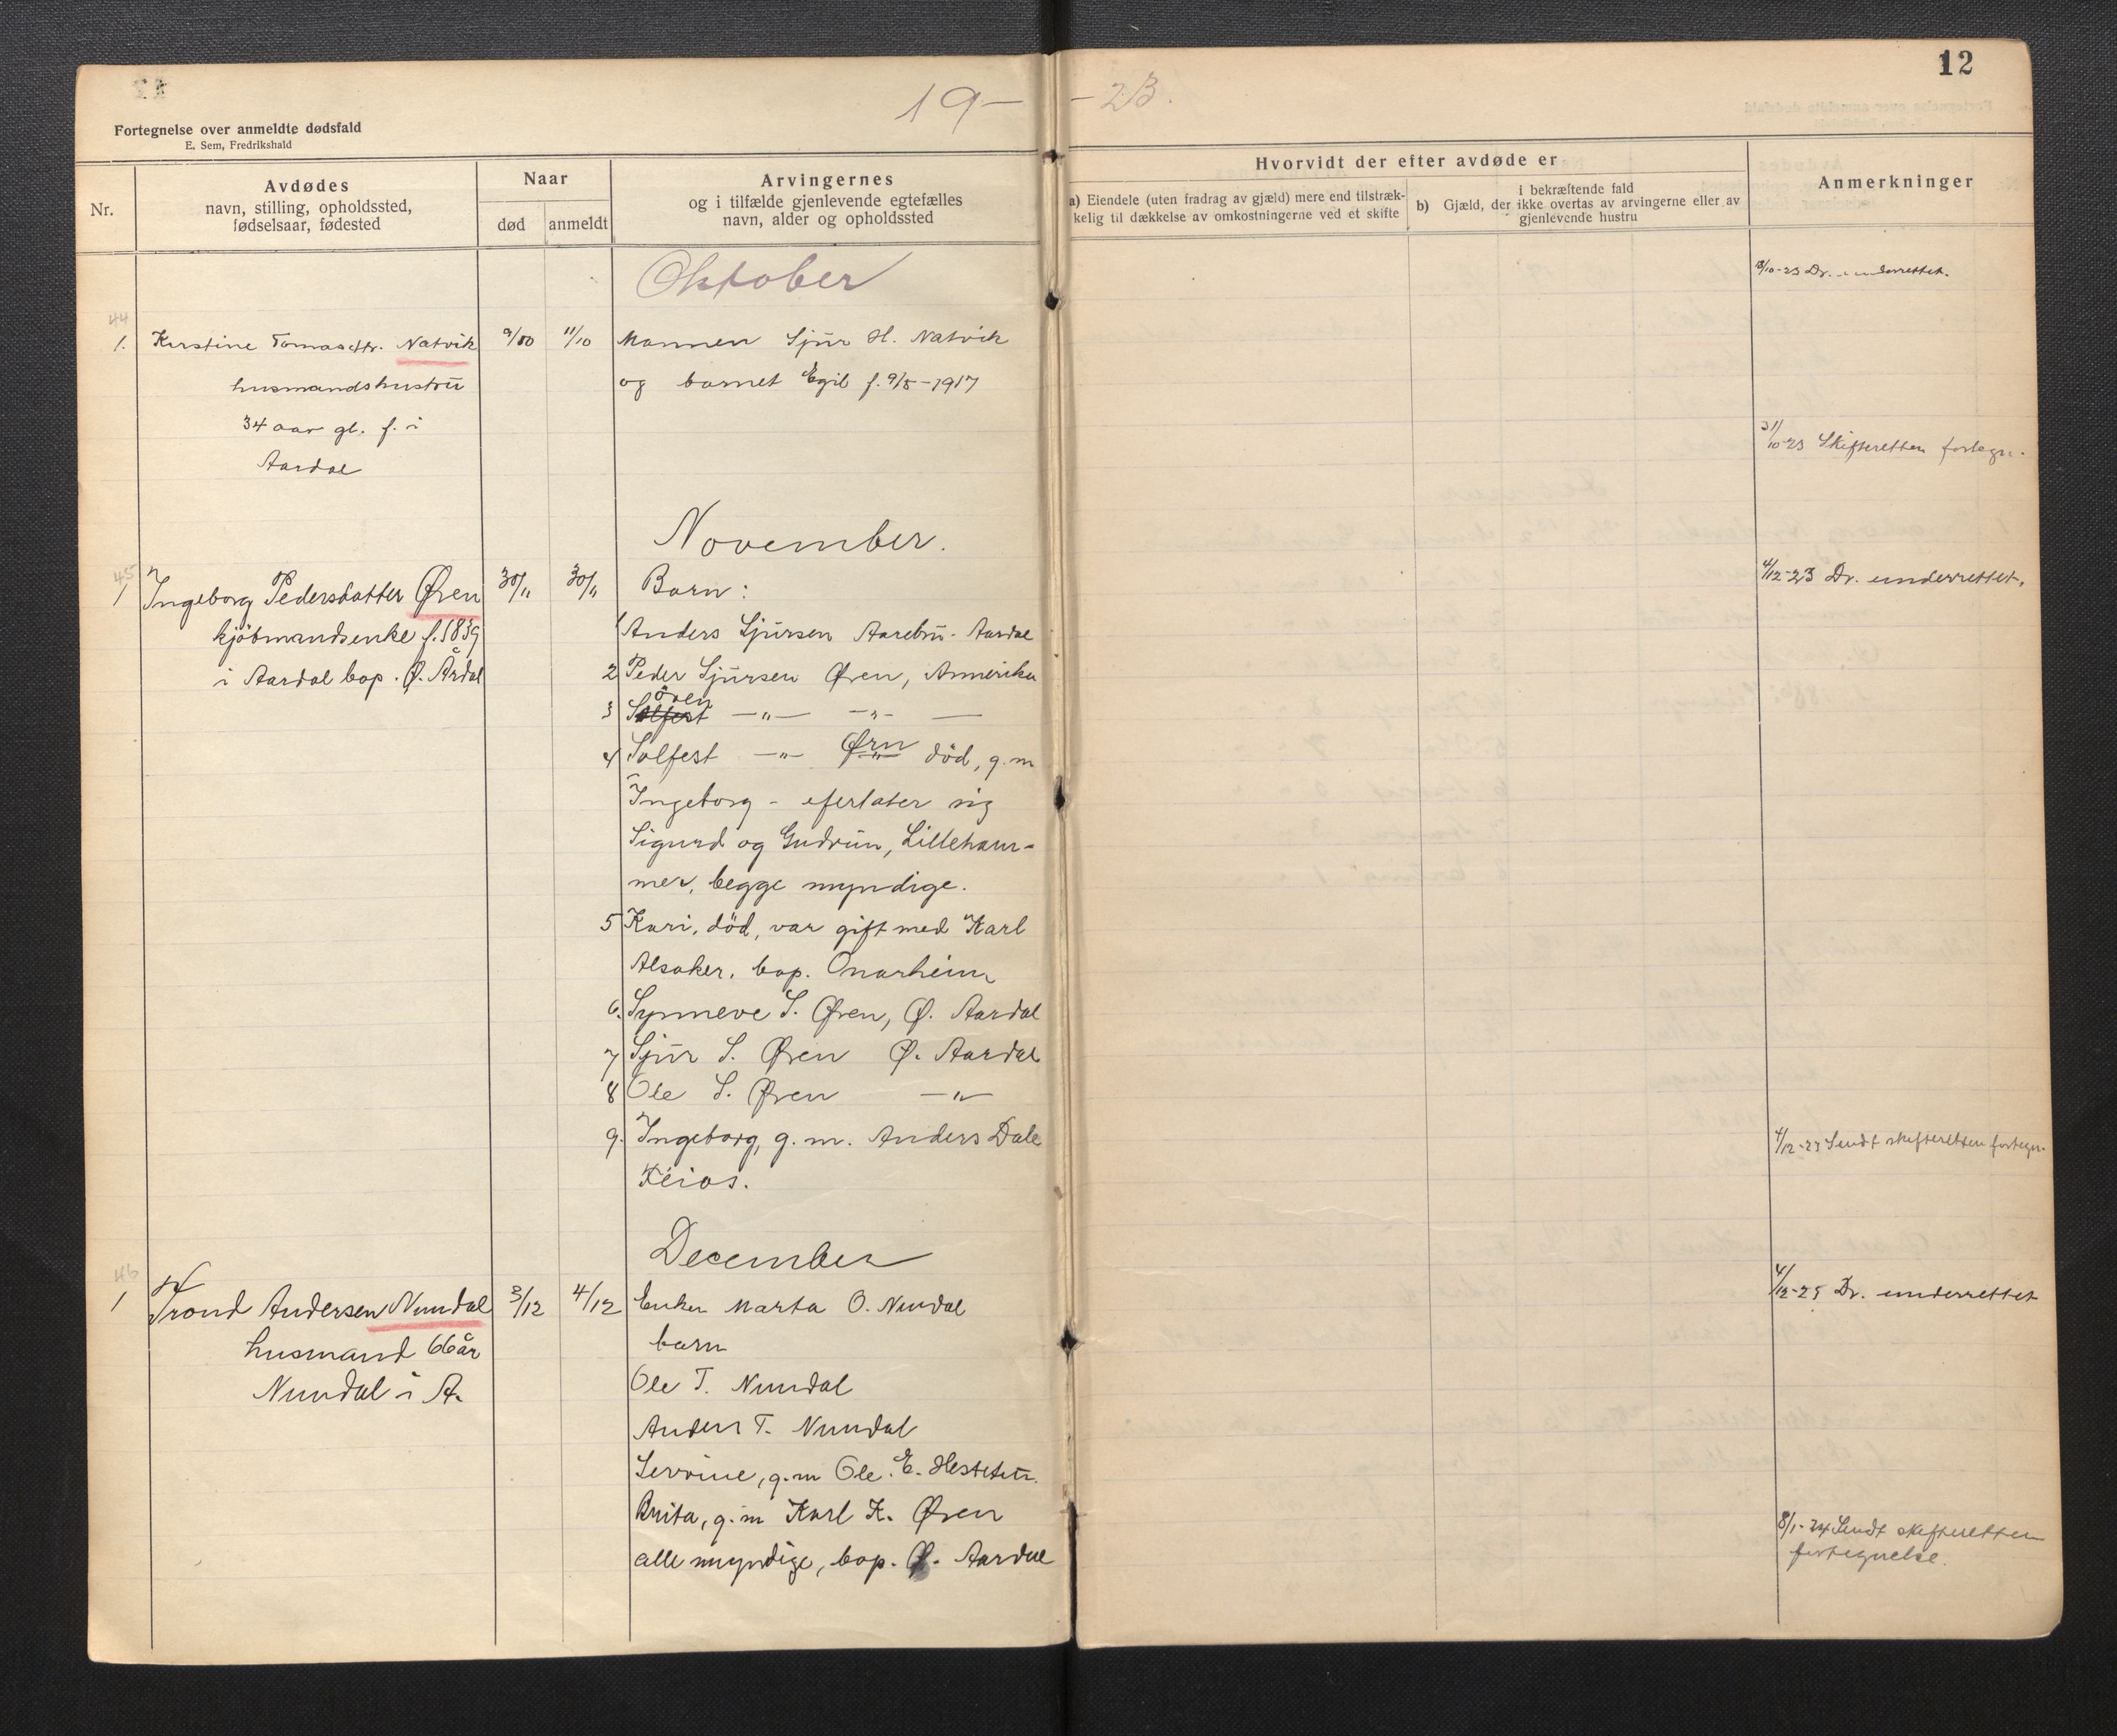 12
19- -23.
Fortegnelse over anmeldte dødsfald
E. Sem, Fredrikshald
Nr.
Avdødes
navn, stilling, opholdssted,
fødselsaar, fødested
Naar
død
anmeldt
Arvingernes
og i tilfælde gjenlevende egtefælles
navn, alder og opholdssted
Hvorvidt der efter avdøde er
a) Eiendele (uten fradrag av gjæld) mere end tilstræk-
kelig til dækkelse av omkostningerne ved et skifte
b) Gjæld, der ikke overtas av arvingerne eller av
i bekræftende fald
gjenlevende hustru
Anmerkninger
Oktober
18/10-23 Dr. underrettet.
44
1. Kirstine Tomasdtr. Natvik 9/10 11/10 Mannen Sjur H. Natvik
husmandshustru og barnet Egil f. 9/5-1917
34 aar gl. f. i
Aardal
31/10-23 Skifteretten fortegn.
November.
45
1 Ingeborg Pedersdatter Øren 30/11 30/11 Barn:
4/12-23 Dr. underrettet.
kjöbmandsenke f. 1839
i Aardal bop. Ø. Årdal
1 Anders Sjursen Aarebru - Aardal
2 Peder Sjursen Øren, Amerika
3 Sören —"— —"— —
4 Solfest —"— Ørn död, g.m
Ingeborg - eferlater sig
Sigurd og Gudrun, Lilleham-
mer, begge myndige.
5 Kari, död, var gift med Karl
Alsaker, bop. Onarheim
6. Synneve S. Øren, Ø. Aardal
7 Sjur S. Øren Ø. Aardal
8 Ole S. Øren —"—
9. Ingeborg, g.m. Anders Dale
4/12-23 Sendt skifteretten fortegn.
December
46
1 Trond Andersen Nundal 3/12 4/12 Enken Marta O. Nundal
husmand 66 år
Nundal i A.
barn
Ole T. Nundal
Anders T. Nundal
Severine, g.m Ole. E. Hestetun.
Brita, g.m Karl K. Øren
alle myndige, bop. Ø. Aardal
4/12-23 Dr. underrettet
8/1-24 Sendt skifteretten
fortegnelse.